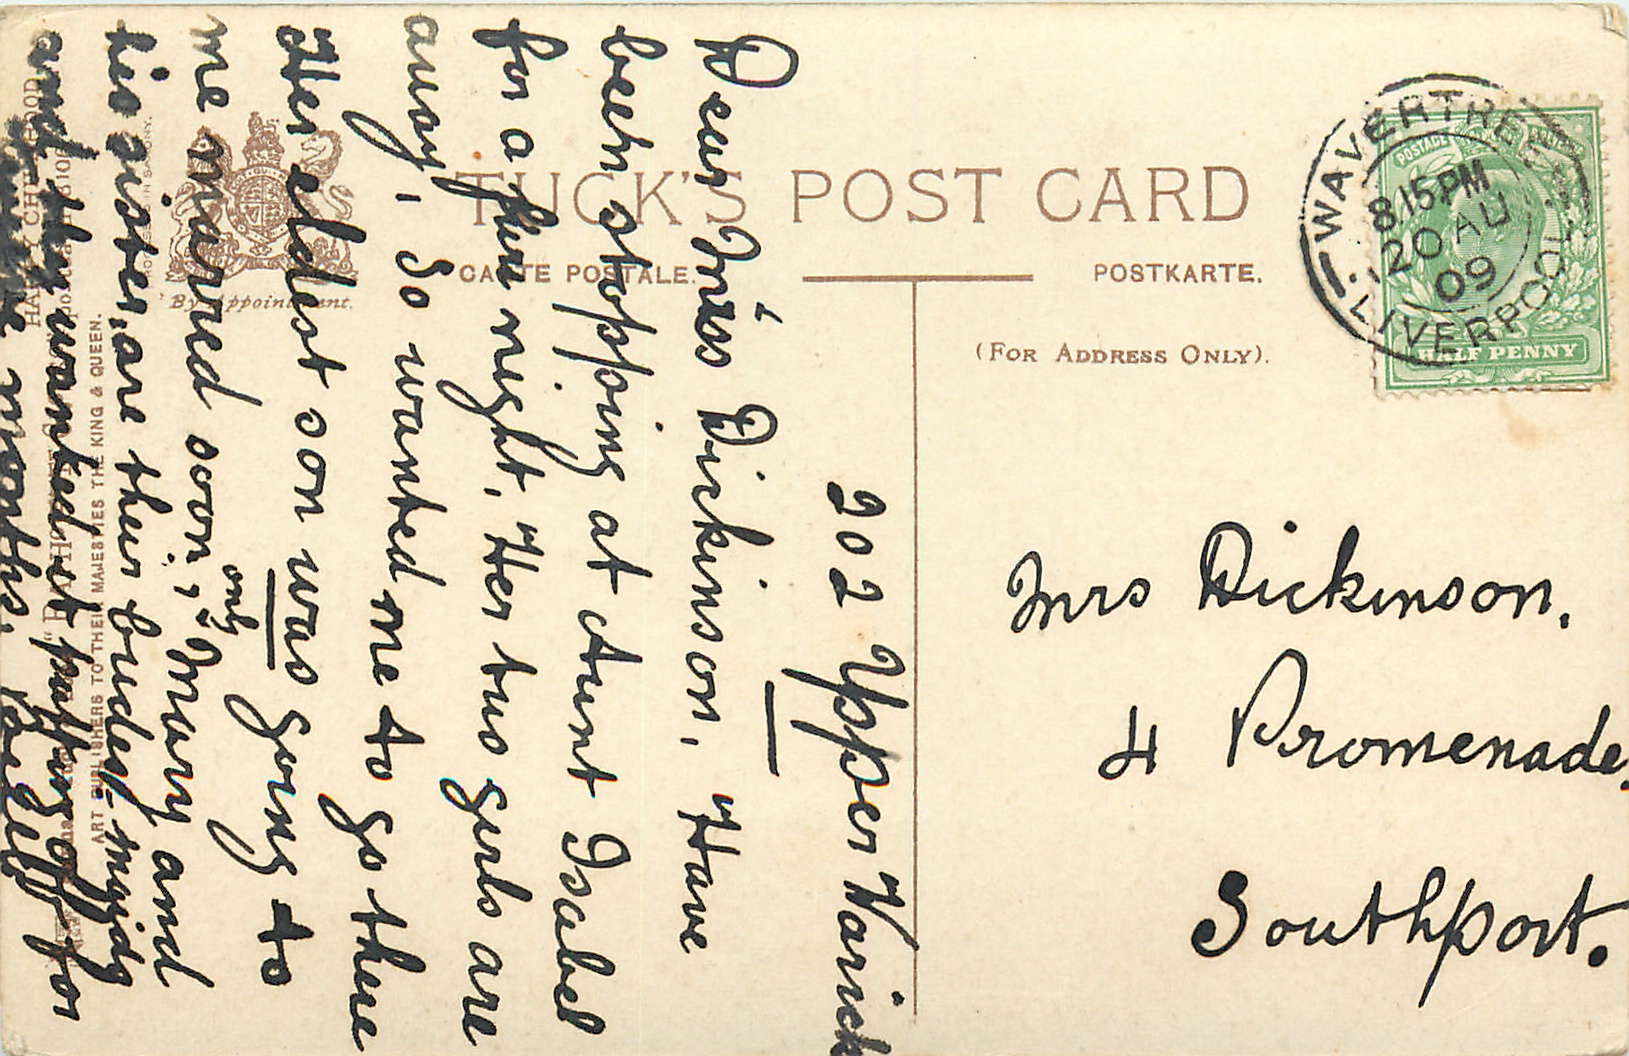 TUCK'S POST CARD
CARTE POSTALE.
POSTKARTE.
(FOR ADDRESS ONLY).
By Appointment.
WAVERTREE
8.15PM
20 AU
09
LIVERPOOL
POSTAGE
HALF PENNY
Mrs Dickinson.
4 Promenade,
Southport.
202 Upper Warwick
Dear Mrs Dickinson, Have
been stopping at Aunt Isabel
for a few night. Her two girls are
away, So wanted me to go there
Her eldest son was going to
only
me married soon; Mary and
his sister, are their brides-maids
and they wanted it putting off for
months.
ART PUBLISHERS TO THEIR MAJESTIES THE KING & QUEEN.